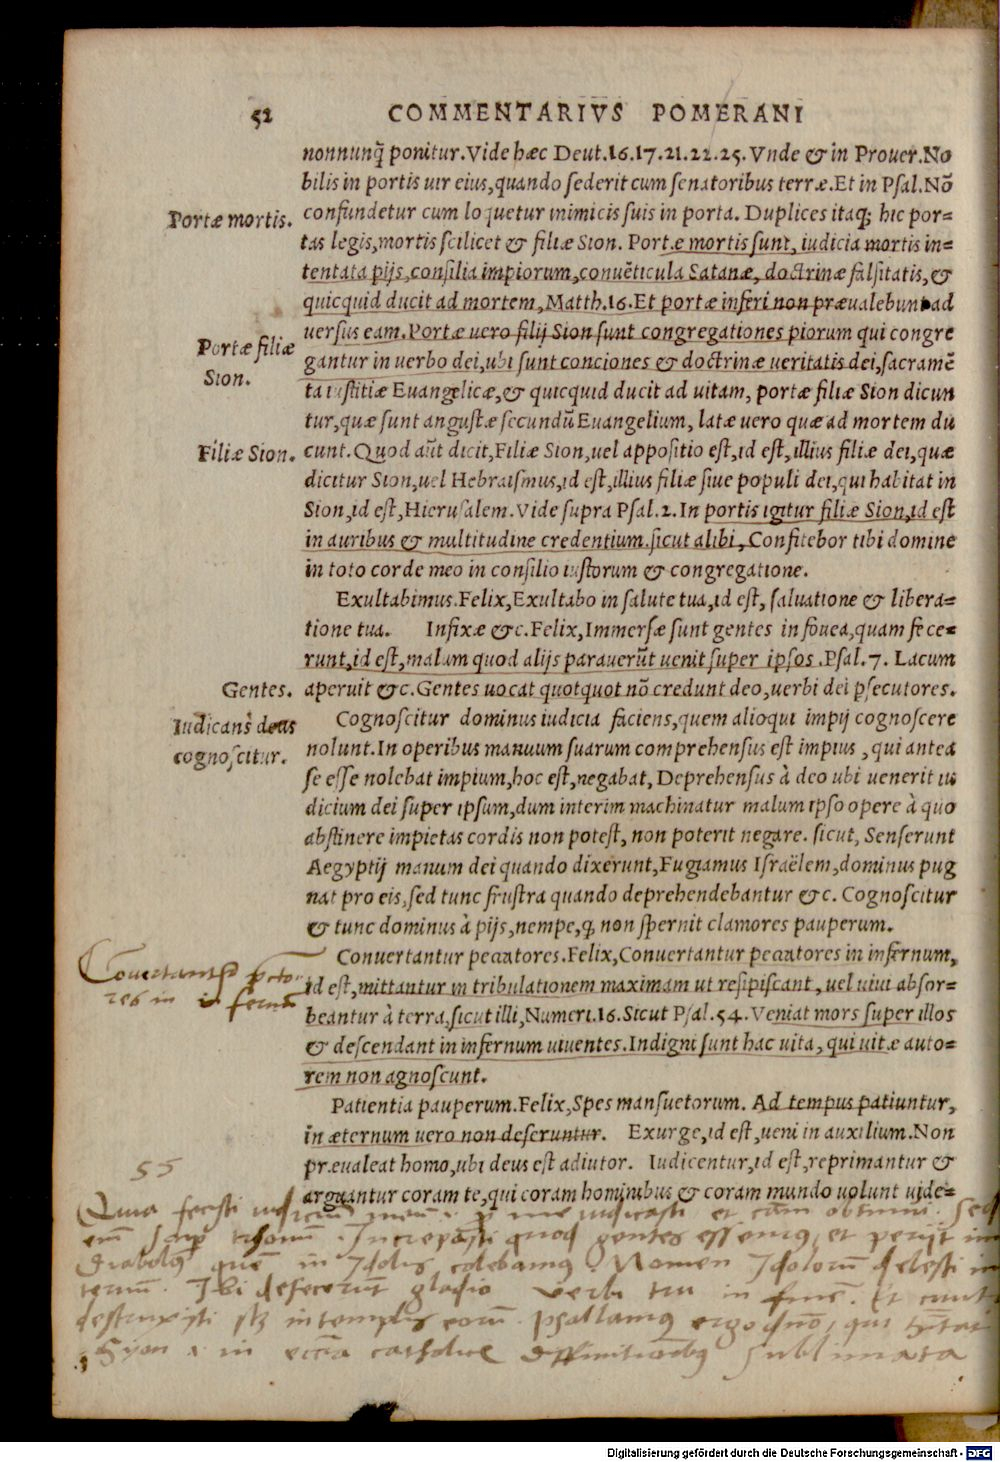 52 COMMENTARIVS POMERANI
nonnunq̃ ponitur.Vide hæc Deut.16.17.21.22.25.Vnde & in Prouer.No
bilis in portis uir eius,quando sederit cum senatoribus terræ.Et in Psal.Nõ
Portæ mortis.
confundetur cum loquetur inimicis suis in porta. Duplices itaq; hic por=
tas legis,mortis scilicet & filiæ Sion. Portæ mortis sunt, iudicia mortis in=
tentata pijs,consilia impiorum,conuẽticula Satanæ, doctrinæ falsitatis,&
quicquid ducit ad mortem,Matth.16.Et portæ inferi non præualebunt ad
uersus eam.Portæ uero filij Sion sunt congregationes piorum qui congre
Portæ filiæ
Sion.
gantur in uerbo dei,ubi sunt conciones & doctrinæ ueritatis dei,sacramẽ
ta iustitiæ Euangelicæ,& quicquid ducit ad uitam, portæ filiæ Sion dicun
tur,quæ sunt angustæ secundũ Euangelium, latæ uero quæ ad mortem du
Filiæ Sion.
cunt.Quod aũt dicit,Filiæ Sion,uel appositio est,id est,illius filiæ dei,quæ
dicitur Sion,uel Hebraismus,id est,illius filiæ siue populi dei,qui habitat in
Sion,id est,Hierusalem.Vide supra Psal.2.In portis igitur filiæ Sion,id est
in auribus & multitudine credentium.sicut alibi, Confitebor tibi domine
in toto corde meo in consilio iustorum & congregatione.
Exultabimus.Felix,Exultabo in salute tua,id est, saluatione & libera=
tione tua. Infixæ &c.Felix,Immersæ sunt gentes in fouea,quam fece=
runt,id est,malum quod alijs parauerũt uenit super ipsos.Psal.7. Lacum
Gentes.
aperuit &c.Gentes uocat quotquot nõ credunt deo,uerbi dei psecutores.
Iudicans deus
cognoscitur.
Cognoscitur dominus iudicia faciens,quem alioqui impij cognoscere
nolunt.In operibus manuum suarum comprehensus est impius, qui antea
se esse nolebat impium,hoc est,negabat, Deprehensus à deo ubi uenerit iu
dicium dei super ipsum,dum interim machinatur malum ipso opere à quo
abstinere impietas cordis non potest, non poterit negare. sicut, Senserunt
Aegyptij manum dei quando dixerunt,Fugiamus Israëlem,dominus pug
nat pro eis,sed tunc frustra quando deprehendebantur &c. Cognoscitur
& tunc dominus à pijs,nempe,q; non spernit clamores pauperum.
Couertantur p̃cto-
res in infernũ
Conuertantur peccatores.Felix,Conuertantur peccatores in infernum,
id est,mittantur in tribulationem maximam ut resipiscant, uel uiui absor=
beantur à terra,sicut illi,Numeri.16.Sicut Psal.54.Veniat mors super illos
& descendant in infernum uiuentes.Indigni sunt hac uita, qui uitæ auto=
rem non agnoscunt.
Patientia pauperum.Felix,Spes mansuetorum. Ad tempus patiuntur,
in æternum uero non deseruntur. Exurge,id est,ueni in auxilium.Non
præualeat homo,ubi deus est adiutor. Iudicentur,id est,reprimantur &
arguantur coram te,qui coram hominibus & coram mundo uolunt uide=
55
Quia fecisti iudicium meũ
Increpasti quod gentes essemus, et perijt im
in Idolis colebamus. Nomen Idolorũ delesti in
Ibi defecerũt gladio verbi tui in finẽ. Et ciuit
destruxisti in templis eorũ. psallamus ergo dn̄o, qui
Syon in ecc̃ia catholice sublimata
Digitalisierung gefördert durch die Deutsche Forschungsgemeinschaft - DFG